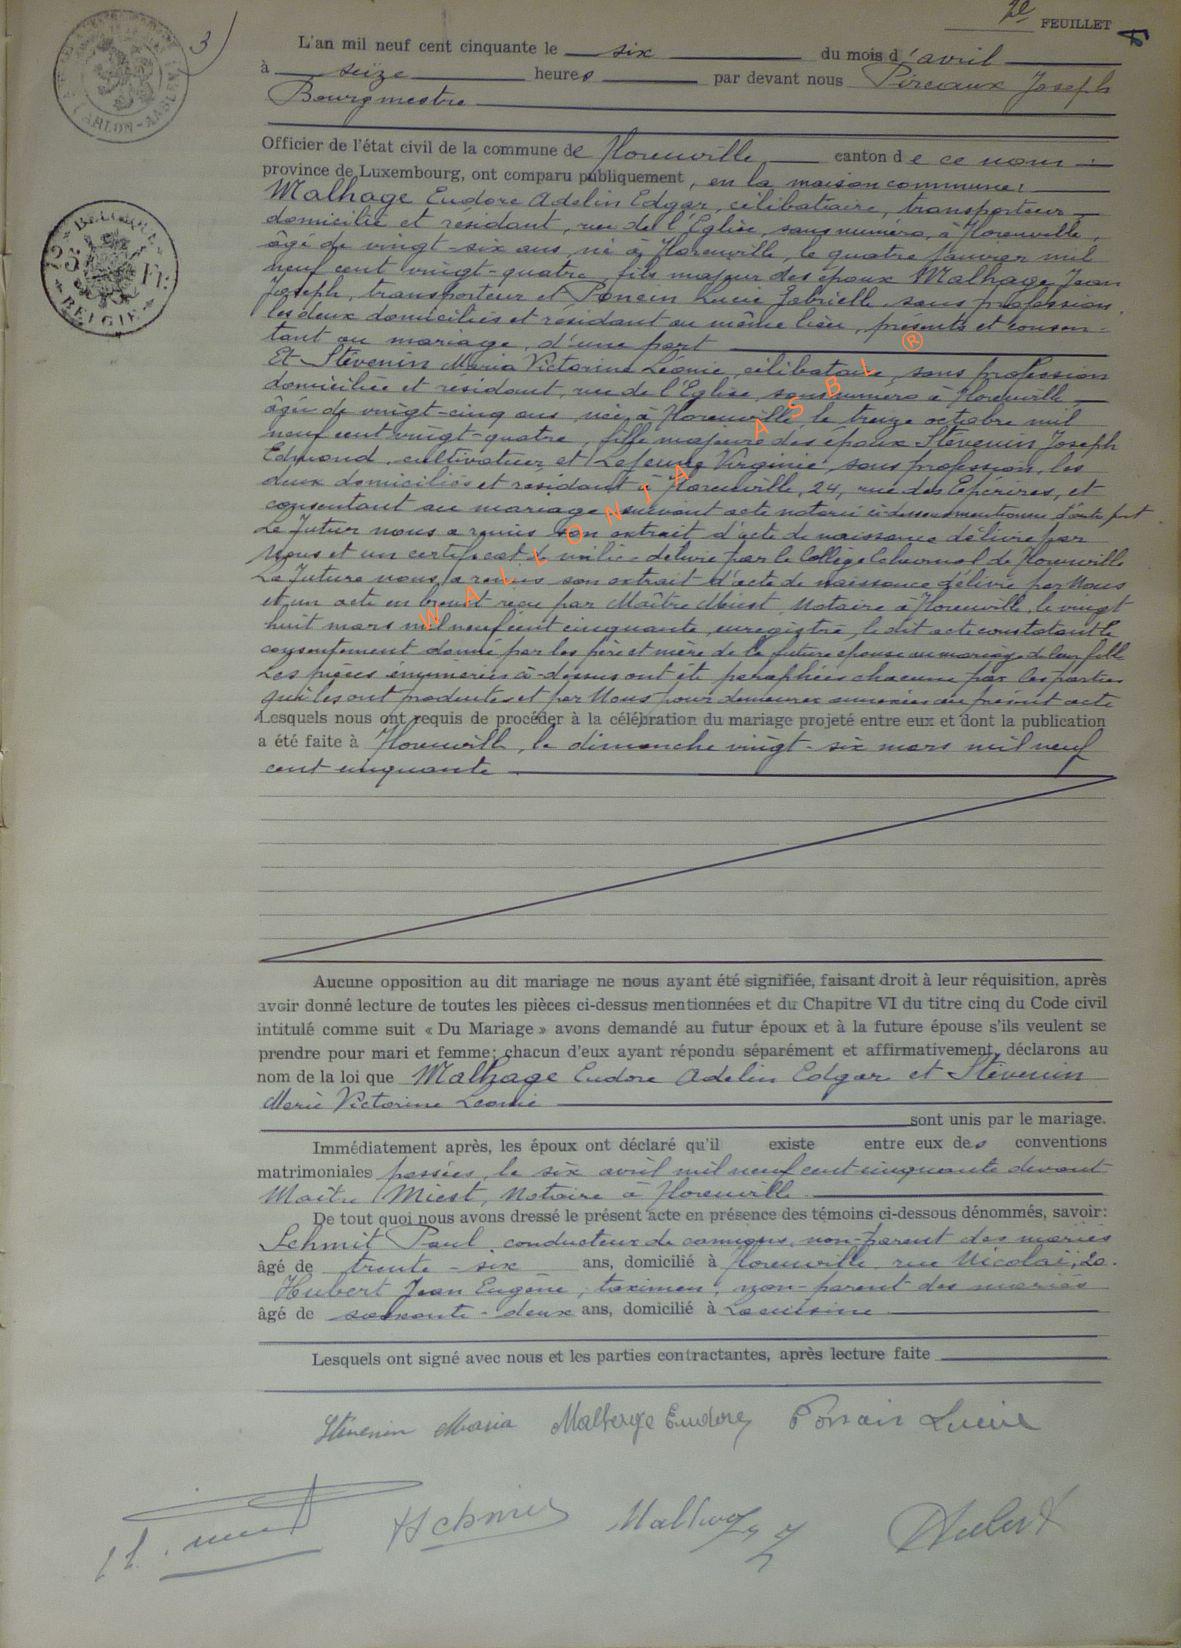 3)
2e FEUILLET
L'an mil neuf cent cinquante le six du mois d'avril
à seize heures par devant nous Pireaux Joseph
Bourgmestre
Officier de l'état civil de la commune de Florenville canton de ce nom
province de Luxembourg, ont comparu publiquement, en la maison commune:
Malhage Eudore Adelin Edgar, célibataire, transporteur
domicilié et résidant, rue de l'Eglise, sans numéro, à Florenville,
âgé de vingt-six ans, né à Florenville, le quatre janvier mil
neuf cent vingt-quatre, fils majeur des époux Malhage Jean
Joseph, transporteur et Poncin Lucie Gabrielle, sans profession,
les deux domiciliés et résidant au même lieu, présents et consen-
tant au mariage, d'une part
Et Stévenin Maria Victorine Léonie, célibataire, sans profession
domiciliée et résidant, rue de l'Eglise, sans numéro à Florenville
âgée de vingt-cinq ans, née à Florenville le treize octobre mil
neuf cent vingt-quatre, fille majeure des époux Stévenin Joseph
Edmond, cultivateur et Lejeune Virginie, sans profession, les
deux domiciliés et résidant à Florenville, 24, rue des Epérires, et
consentant au mariage suivant acte notarié ci-dessous mentionné d'autre part
Le futur nous a remis son extrait d'acte de naissance délivré par
Nous et un certificat de milice délivré par le Collège Echevinal de Florenville
La future nous a remis son extrait d'acte de naissance délivré par Nous
et un acte en brevet reçu par Maître Miest, Notaire à Florenville, le vingt
huit mars mil neuf cent cinquante, enregistré, le dit acte constatant le
consentement donné par les père et mère de la future épouse au mariage de leur fille
Les pièces énumérées ci-dessus ont été paraphées chacune par les parties
qui les ont produites et par Nous pour demeurer annexées au présent acte
Lesquels nous ont requis de procéder à la célébration du mariage projeté entre eux et dont la publication
a été faite à Florenville, le dimanche vingt-six mars mil neuf
cent cinquante
Aucune opposition au dit mariage ne nous ayant été signifiée, faisant droit à leur réquisition, après
avoir donné lecture de toutes les pièces ci-dessus mentionnées et du Chapitre VI du titre cinq du Code civil
intitulé comme suit « Du Mariage » avons demandé au futur époux et à la future épouse s'ils veulent se
prendre pour mari et femme; chacun d'eux ayant répondu séparément et affirmativement, déclarons au
nom de la loi que Malhage Eudore Adelin Edgar et Stévenin
Maria Victorine Léonie
sont unis par le mariage.
Immédiatement après, les époux ont déclaré qu'il existe entre eux des conventions
matrimoniales passées, le six avril mil neuf cent cinquante devant
Maître Miest, Notaire à Florenville.
De tout quoi nous avons dressé le présent acte en présence des témoins ci-dessous dénommés, savoir:
Schmit Paul, conducteur de camions, non-parent des mariés
âgé de trente-six ans, domicilié à Florenville, rue Nicolaï, 20.
Hubert Jean Eugène, taximen, non-parent des mariés
âgé de soixante-deux ans, domicilié à Lacuisine
Lesquels ont signé avec nous et les parties contractantes, après lecture faite
Stévenin Maria Malhage Eudore Poncin Lucie
Schmit Malhage J Hubert
BELGIQUE
5 Fr
BELGIE
ARLON-AARLEN
WALLONIA ASBL ®